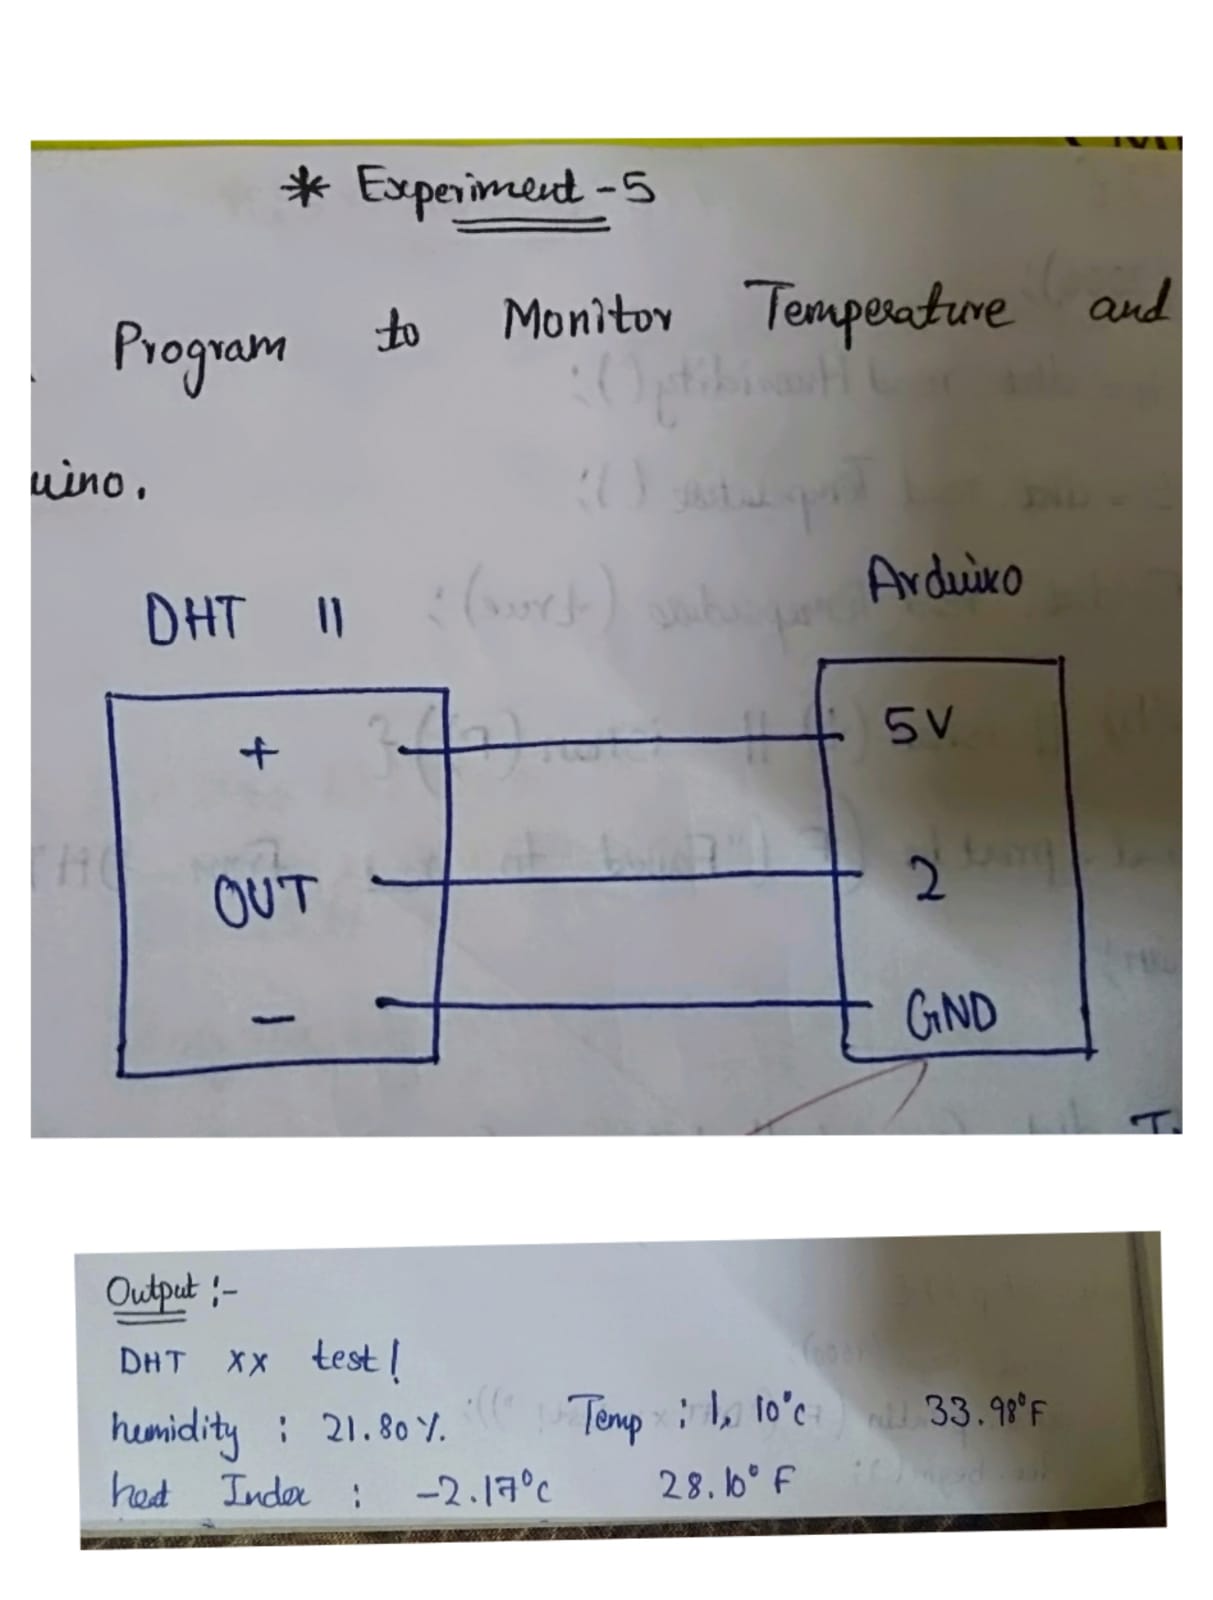 * Experiment - 5
Program to Monitor Temperature and
uino.
DHT 11
Arduino
+ 5V
OUT 2
- GND
Output :-
DHT xx test!
humidity : 21.80%. Temp : 1, 10°C 33.98°F
heat Index : -2.17°C 28.10° F